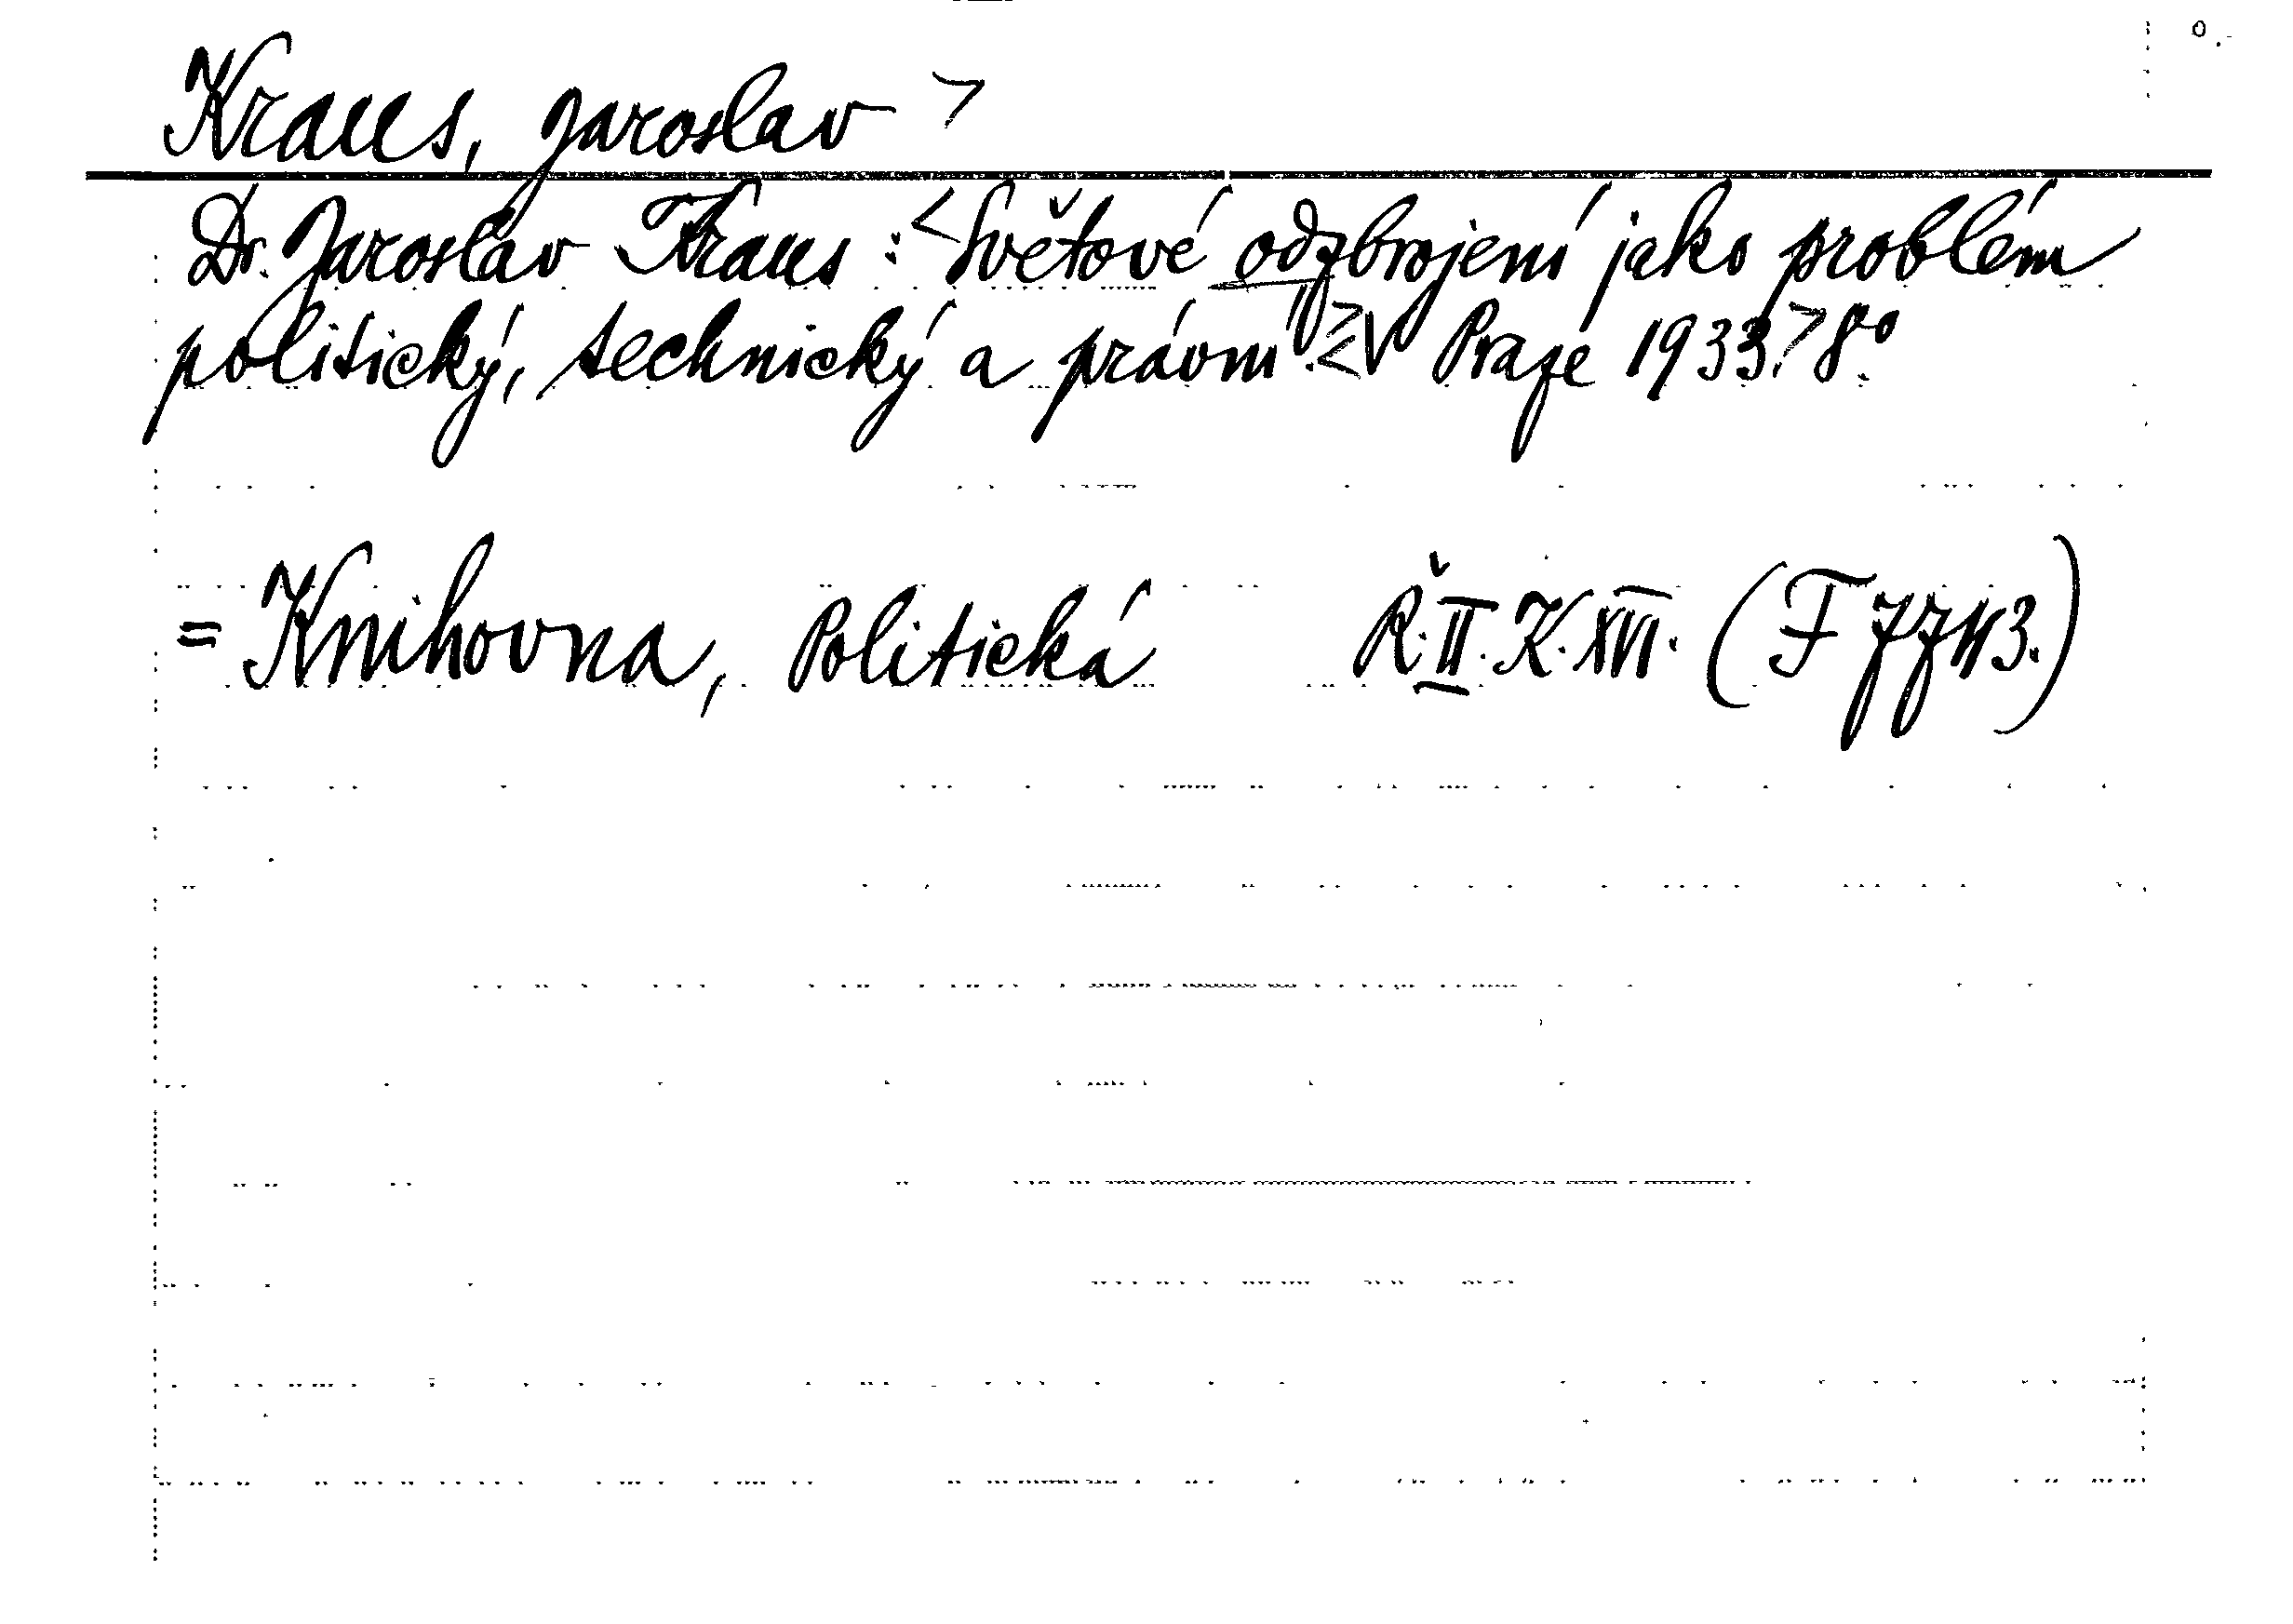 Kraus, Jaroslav >
Dr. Jaroslav Kraus : <Světové odzbrojení jako problém
politický, technický a právní.> <V Praze 1933.> 8°.
= Knihovna, Politická Ř. II. K. XVI. (F 7743.)